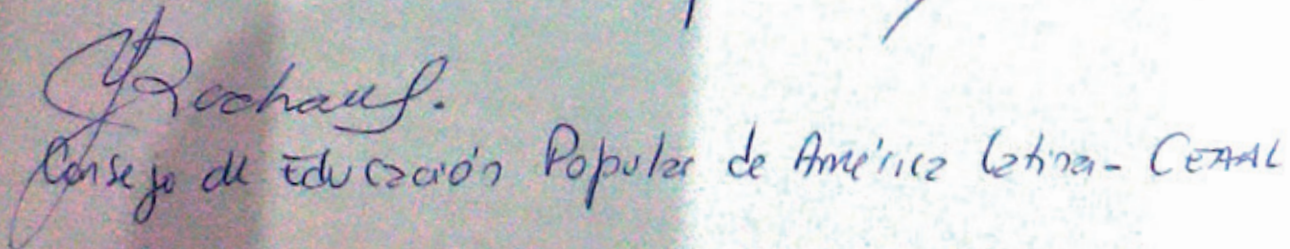 Consejo de Educación Popular de América Latina - CEAAL